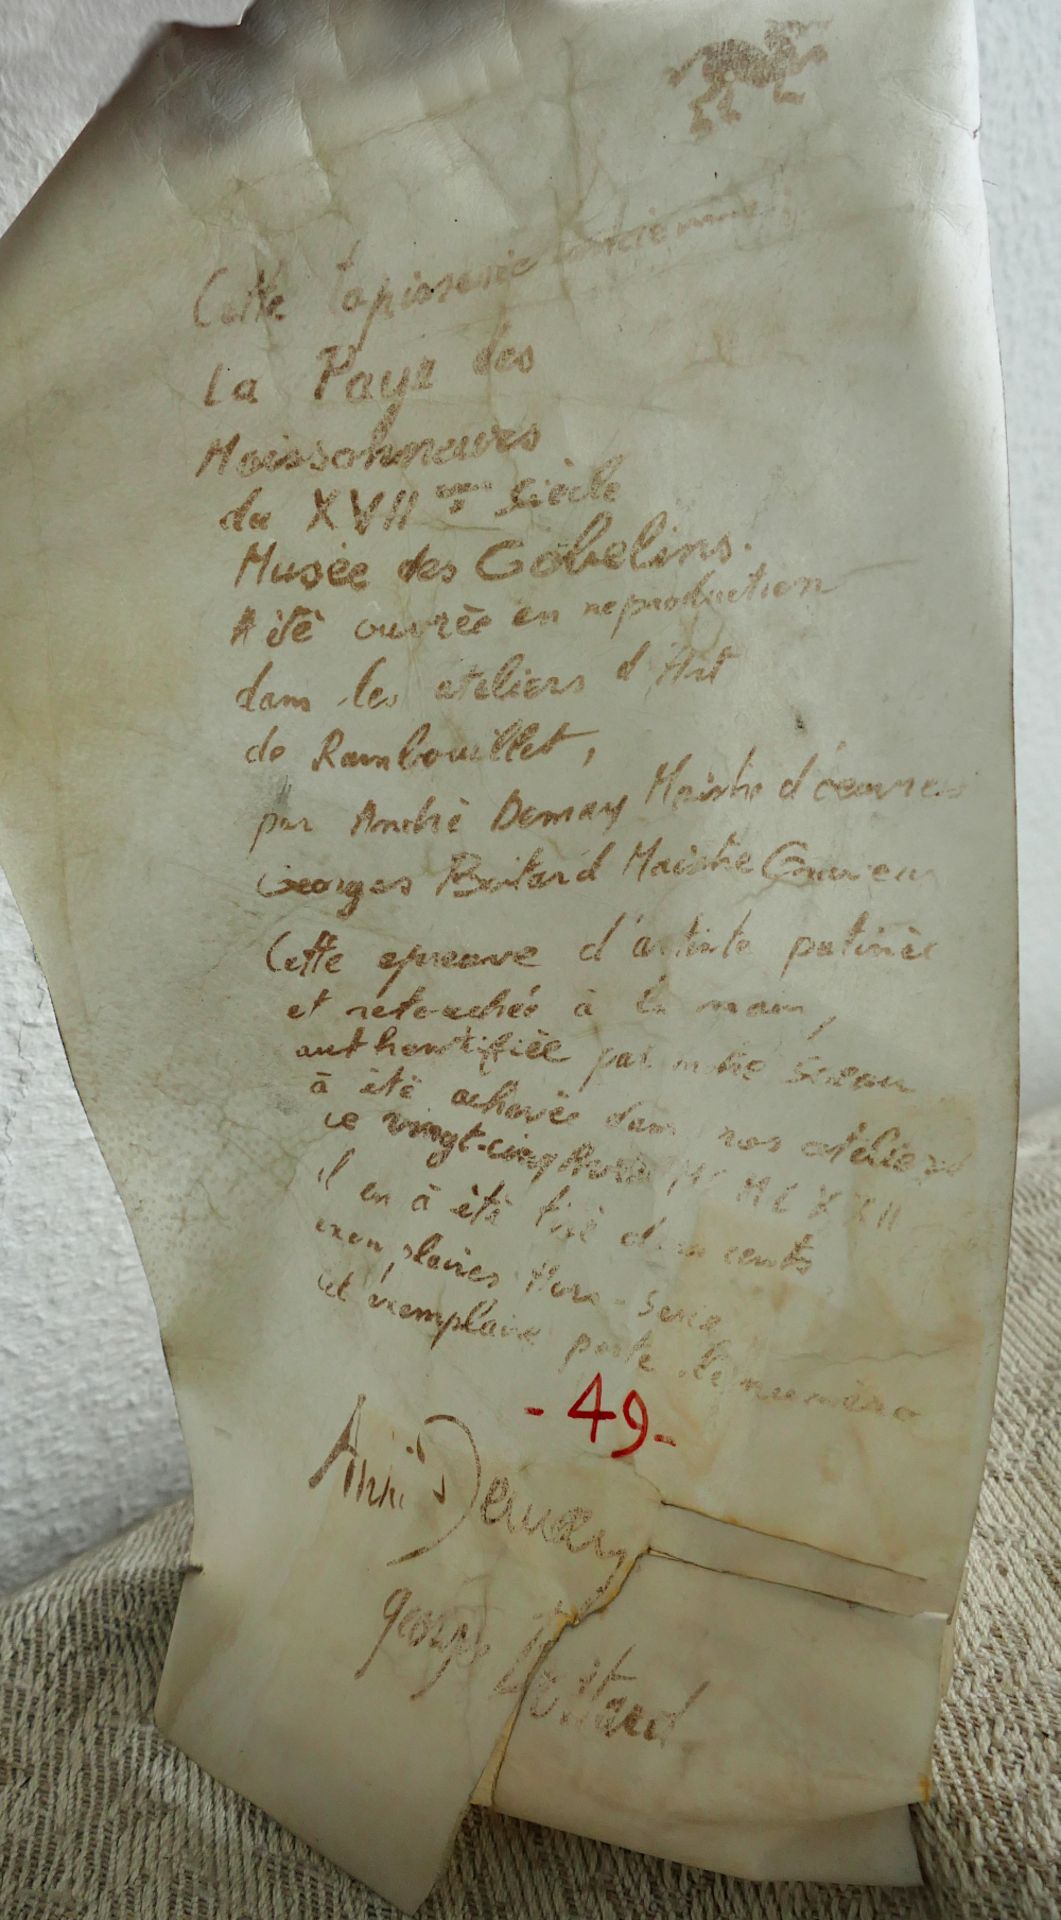 Cette tapisserie ancienne
La Paye des
Moissonneurs
du XVII eme Siècle
Musèe des Gobelins.
A étè ouvrèe en reproduction
dans les ateliers d'Art
de Rambouillet,
par Andrè Demay Maistre d'oeuvres
Georges Boitard Maistre Graveur
Cette epreuve d'artiste patinèe
et retouchée à la main,
authentifièe par notre Sceau
à étè achevèe dans nos ateliers
ce vingt-cinq
il en à étè tiré cents
exemplaires Hors-Serie
cet exemplaire porte le numèro
- 49 -
Andrè Demay
georges Boitard